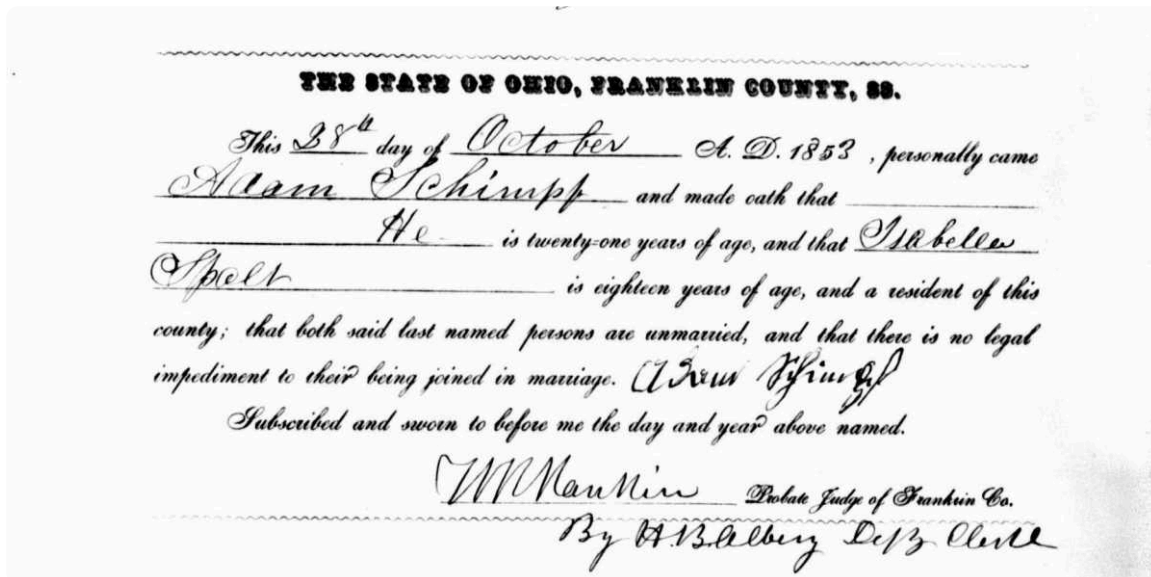 THE STATE OF OHIO, FRANKLIN COUNTY, SS.
This 28th day of October A. D. 1853, personally came
Adam Schimpf and made oath that
He is twenty=one years of age, and that Isabella
Spelt is eighteen years of age, and a resident of this
county; that both said last named persons are unmarried, and that there is no legal
impediment to their being joined in marriage. Adam Schimpf
Subscribed and sworn to before me the day and year above named.
WR Rankin Probate Judge of Franklin Co.
By H.B. Albery Dep. Clerk